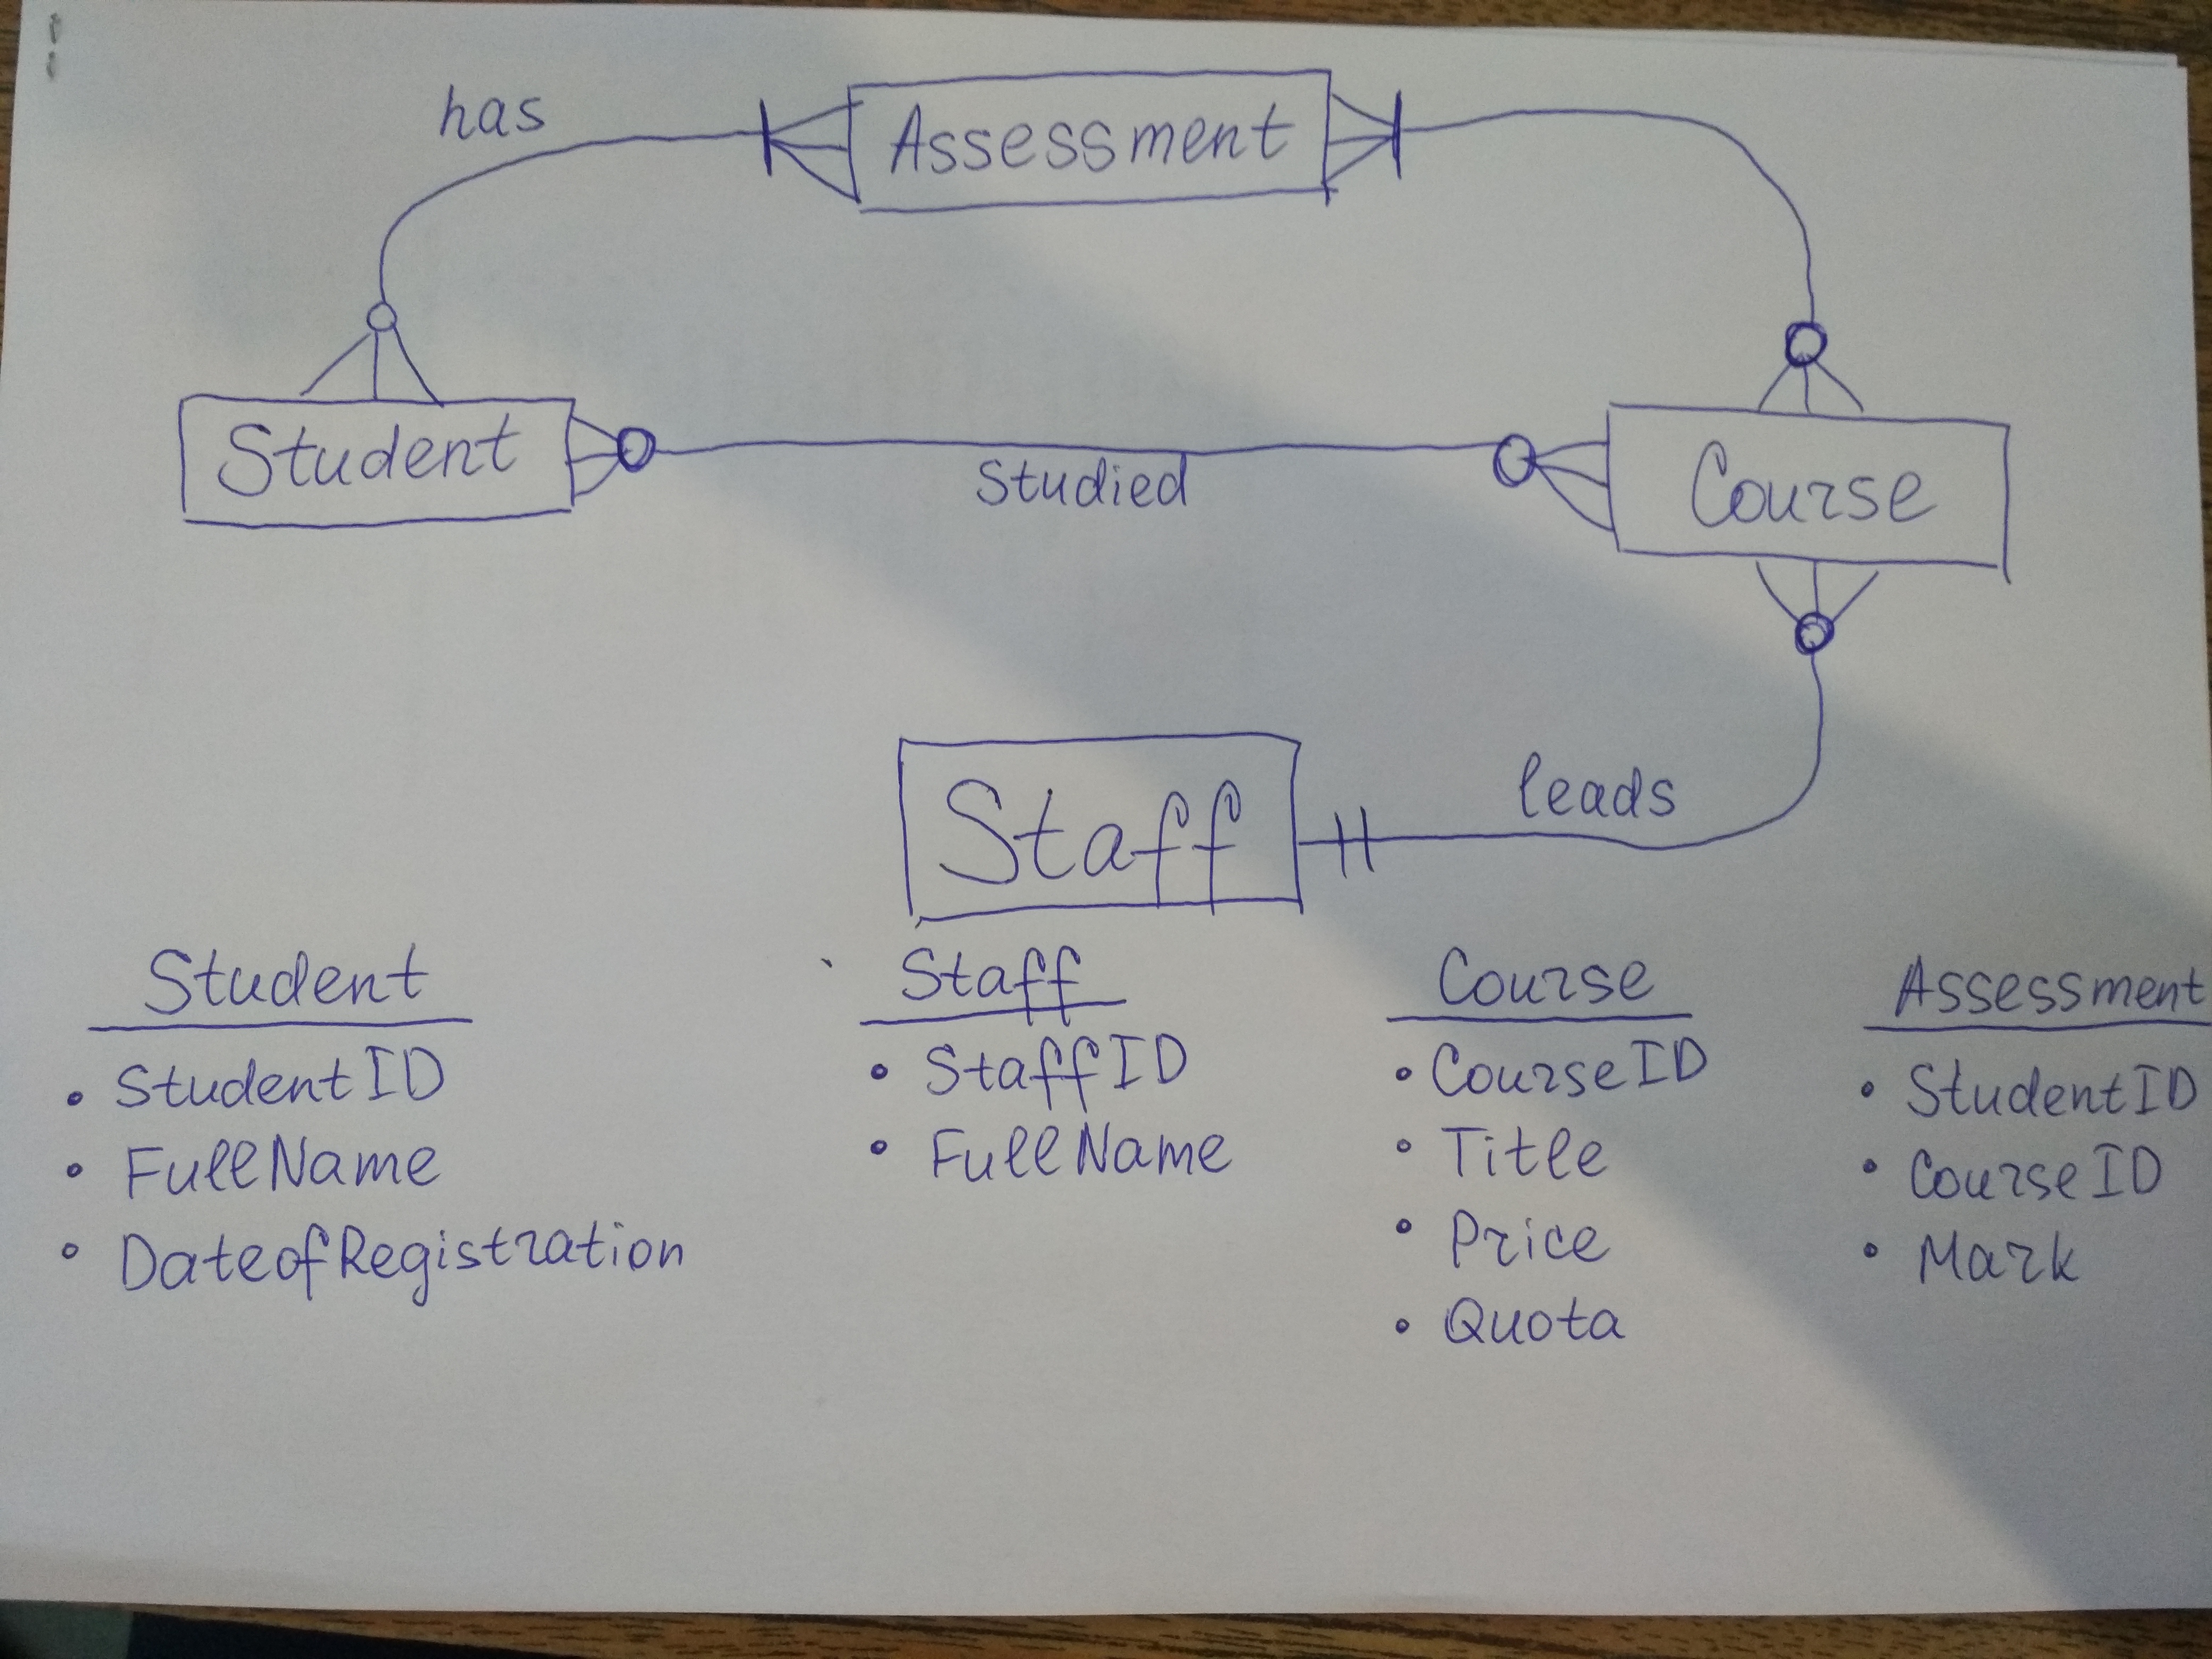 has
Assessment
Student
Studied
Course
Staff
leads
Student
• StudentID
• FullName
• DateofRegistration
Staff
• StaffID
• FullName
Course
• CourseID
• Title
• Price
• Quota
Assessment
• StudentID
• CourseID
• Mark